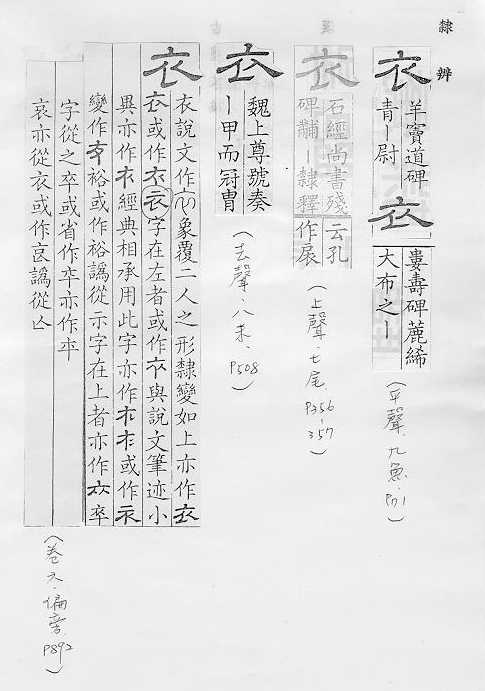 隸辨
衣
羊竇道碑
青ー尉
衣
婁壽碑麤絺
大布之ー
(平聲.九魚.P71)
衣
石經尚書殘
碑黼ー隸釋
云孔
作扆
(上聲.七尾.P356-357)
衣
魏上尊號奏
ー甲而冠冑
(去聲.八未.P508)
衣
衣說文作象覆二人之形隸變如上亦作衣
衣或作衣衣字在左者或作衤與說文筆迹小
異亦作衣經典相承用此字亦作衤衤或作示
變作裕或作裕譌從示字在上者亦作卒
字從之卒或省作卒亦作卆
哀亦從衣或作哀譌從亼
(卷六.偏旁.P892)